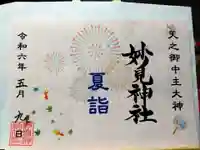 天之御中主大神
妙見神社
夏詣
令和六年五月九日